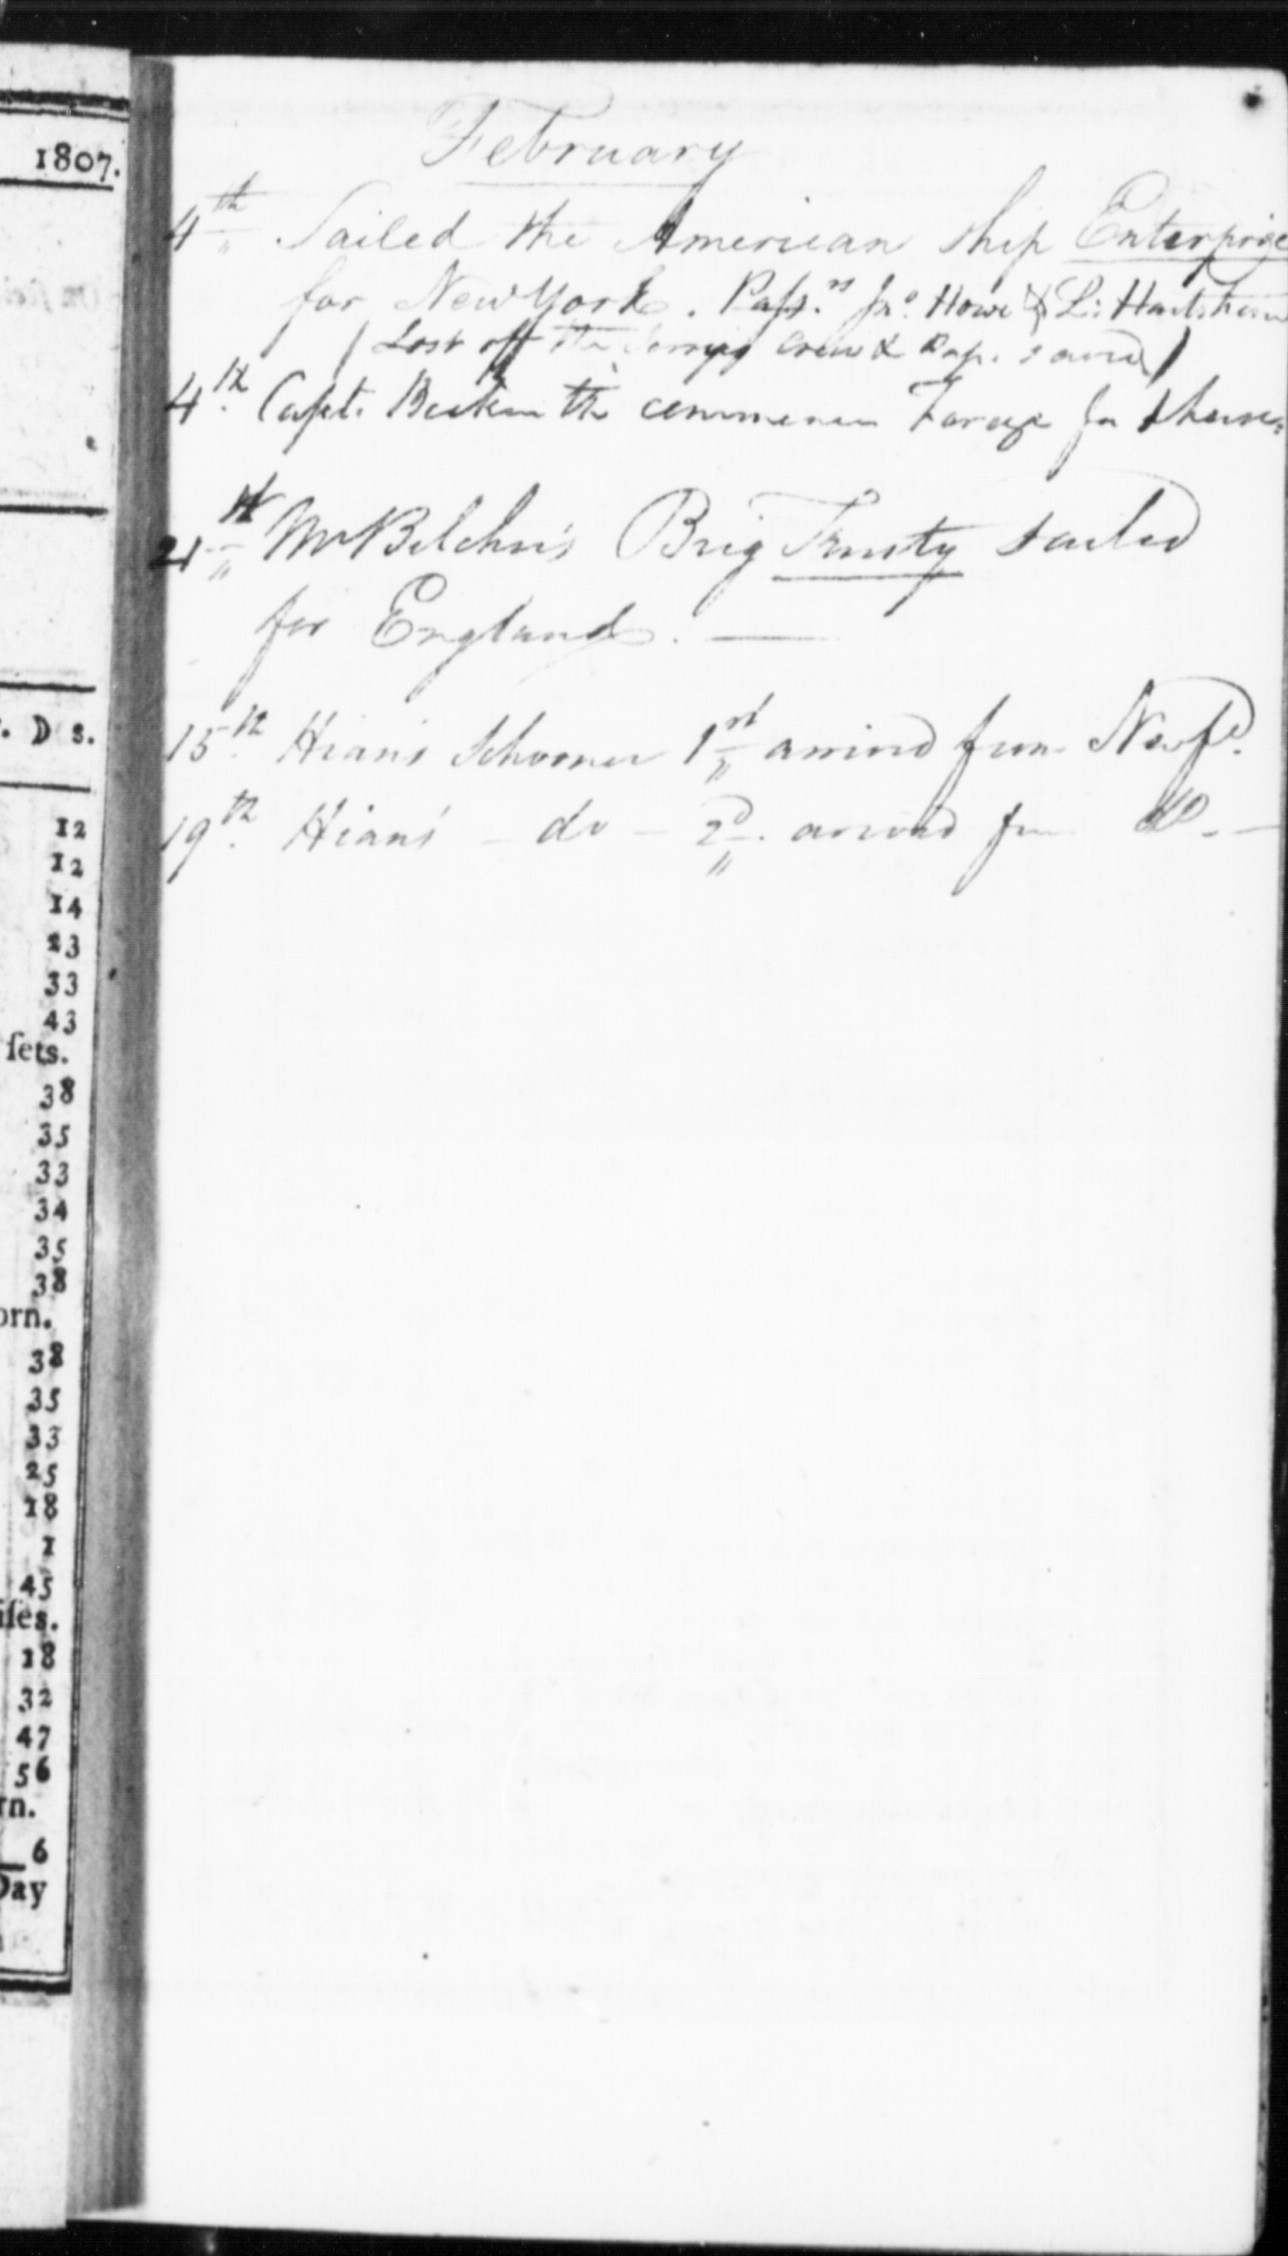 1807.
. D s.
12
12
14
23
33
43
ſets.
38
35
33
34
35
38
orn.
38
35
33
25
18
1
45
iſes.
18
32
47
56
rn.
6
Day
February
4th Sailed the American ship Enterprize
for New York. Passrs Jno Howe & L: Hartshorn
( Lost off the Jerseys Crew & Pas. saved )
4th Capt. the Forage for 1 horse
21st Mr Belcher's Brig Trusty sailed
for England. —
15th Hian's Schooner 1st arrived from Newfd.
19th Hian's – do – 2d. arrived fm Do. —